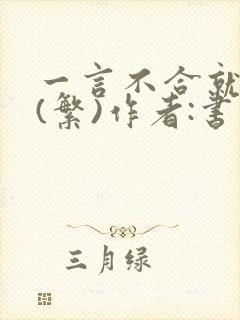 一言不合就
(繁)作者:書
三月绿